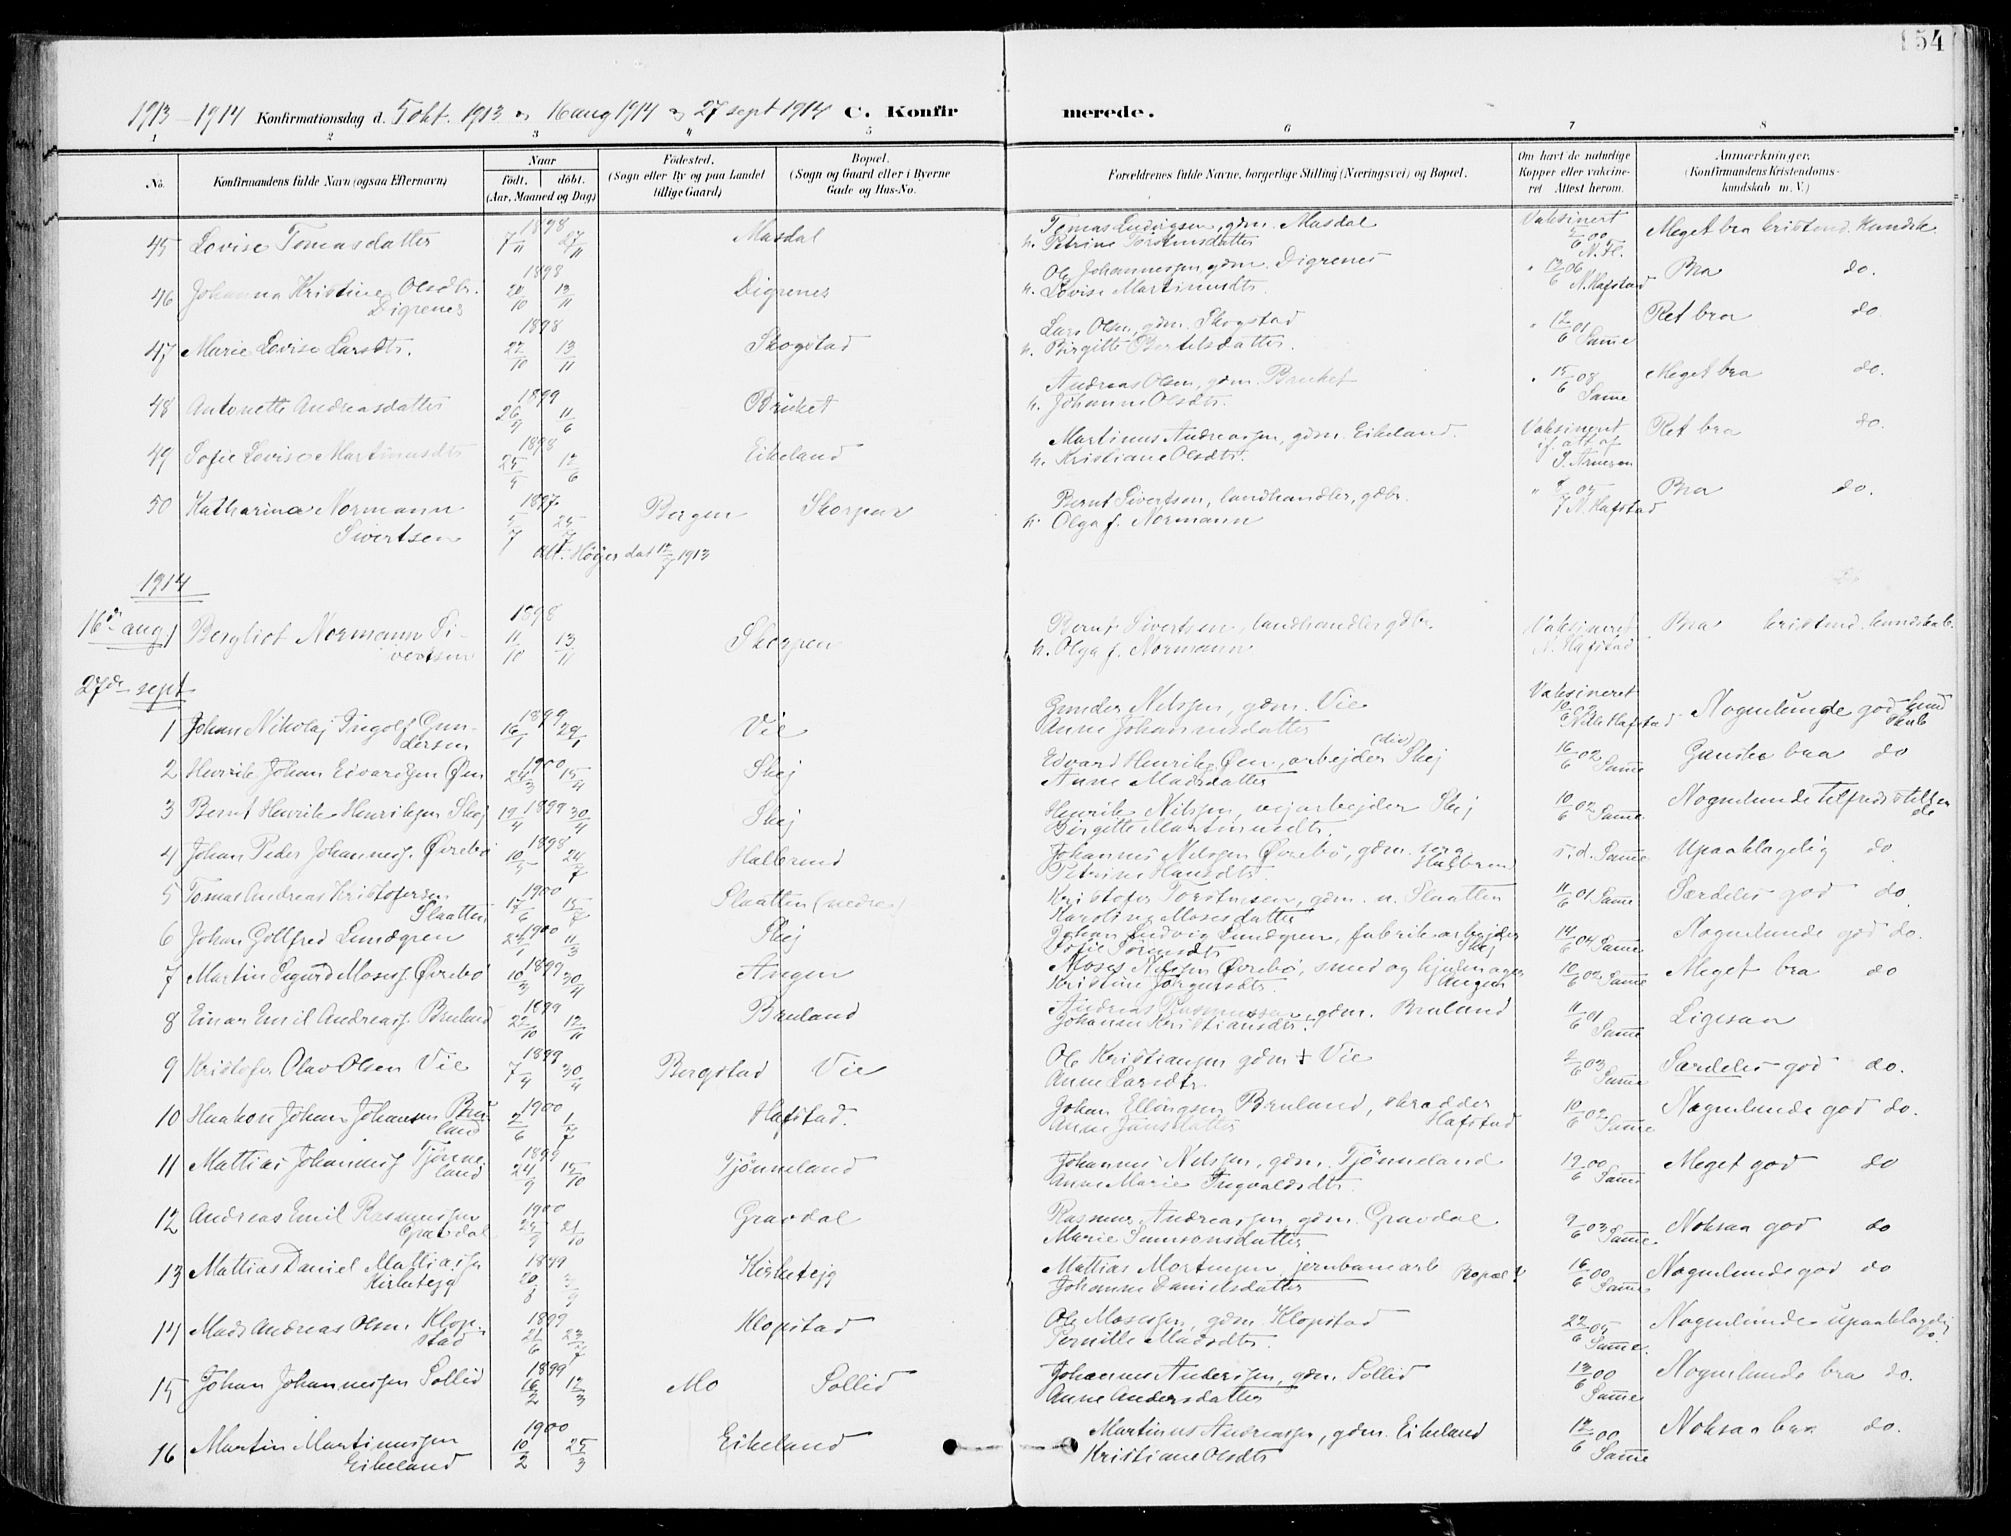 154
1913-1914 Konfirmationsdag d. 5 okt. 1913 og 16 aug 1914 og 27 sept 1914 C. Konfirmerede.
1 2 3 4 5 6 7 8
No. Konfirmandens fulde Navn (ogsaa Efternavn)
Naar født. døbt. (Aar, Maaned og Dag)
Fødested. (Sogn eller By og paa Landet tillige Gaard)
Bopæl. (Sogn og Gaard eller i Byerne Gade og Hus-No.
Forældrenes fulde Navne, borgerlige Stilling (Næringsvei) og Bopæl.
Om havt de naturlige Kopper eller vaccineret Attest herom.
Anmærkninger. (Konfirmandens Kristendomskundskab m. V.)
45 Lovise Tomasdatter 1898 7/11 27/11 Masdal Tomas Ludvigsen, gdm. Masdal Vaksinert Meget bra kristend. kundsk.
h. Petrine Torstensdatter 5/6 00 N. H.
46 Johanna Kristine Olsdtr. Digrenes 1898 20/10 13/11 Digrenes Ole Johannessen, gdm. Digrenes " 13/6 06 N. Hafstad Bra do.
h. Lovise Martinusdtr.
47 Marie Lovise Larsdtr. 1898 22/10 13/11 Skogstad Lars Olsen, gdm. Skogstad " 12/6 01 Samme Ret bra do.
h. Birgitte Bertelsdatter.
48 Antonette Andreasdatter 1899 26/4 11/6 Bruket Andreas Olsen, gdm. Bruket " 15/6 08 Samme Meget bra do.
h. Johanne Olsdtr.
49 Sofie Lovise Martinusdtr 1898 25/5 12/6 Eikeland Martinus Andreassen, gdm. Eikeland. Vaksineret if. att af S. Arnesen Ret bra do.
h. Kristiane Olsdtr.
50 Katharina Normann Sivertsen 1897 5/7 25/7 Bergen Skorpen Bernt Sivertsen, landhandler, gdbr. " N. Hafstad Bra do.
h. Olga f. Normann
att. Høyer dat 12/7 1913
1914
16de aug
1 Bergliot Normann Sivertsen 1898 11/10 13/11 Skorpen Bernt Sivertsen, landhandler gdbr. Vaksineret N. Hafstad Bra kristend. kundskab.
h. Olga f. Normann
27de sept
1 Johan Nikolaj Ingolf Gundersen 1899 16/1 29/1 Vie Gunder Nilssen, gdm. Vie Vaksineret 10/6 02 Nils Hafstad Nogenlunde god kundskab
Anne Johannesdatter
2 Henrik Johan Edvardsen Øen 1900 24/3 15/4 Skej Edvard Henriks. Øen, arbejder Skej 16/6 02 Samme Ganske bra do
Anne Madsdatter
3 Bernt Henrik Henriksen Skej 1899 19/4 30/4 Skej Henrik Nilssen, vejarbejder Skej 10/6 02 Samme Nogenlunde tilfredsstillen do
Birgitte Martinusdtr.
4 Johan Peder Johanness. Øvrebø 1898 10/5 24/7 Halbrend Johannes Nilssen Øvrebø, gdm. Halbrend s. d. Samme Upaaklagelig do
Petrine Hansdtr.
5 Tomas Andreas Kristofersen Slaatten 1900 17/6 15/7 Slaatten (nedre) Kristofer Torstensen, gdm. n. Slaatten 11/6 01 Samme Særdeles god do.
Karoline Mosesdatter
6 Johan Gottfred Lundgren 1900 11/3 Skej Johan Ludvig Lundgren, fabrikarbejder Skej 14/6 04 Samme Nogenlunde god do.
Sofie Sørensdtr
7 Martin Sigurd Moses. Øvrebø 1899 10/3 30/4 Angen Moses Nilssen Øvrebø, smed og hjulmager Angen 10/6 02 Samme Meget bra do
Kristine Jørgensdtr.
8 Einar Emil Andreass. Bruland 1899 22/10 12/11 Bruland Andreas Rasmussen, gdm. Bruland 11/6 01 Samme Ligesaa
Johanne Kristiansdtr.
9 Kristofer Olav Olsen Vie 1899 7/4 30/4 Bergstad Vie Ole Kristiansen gdm Vie 2/6 03 Samme Særdeles god do.
Anne Larsdtr.
10 Haakon Johan Johansen Bruland 1900 2/6 1/7 Hafstad. Johan Ellingsen Bruland, skrædder Hafstad 10/6 02 Samme Nogenlunde god do.
Anne Jansdatter
11 Mattias Johanness. Tjønneland 1899 24/9 15/10 Tjønneland Johannes Nilssen, gdm. Tjønneland 19/6 00 Samme Meget god do
Anne Marie Ingvaldsdtr.
12 Andreas Emil Rasmussen Gravdal 1900 21/10 Gravdal Rasmus Andreassen, gdm. Gravdal 9/6 03 Samme Noksaa god do
Marie Samsonsdatter
13 Mattias Daniel Mattiassen Kirketejg 1899 20/8 Kirketejg Mattias Mortensen, jernbanearb Bopæl ? 16/6 00 Samme Nogenlunde god do
Johanne Danielsdatter
14 Mads Andreas Olsen Klopstad 1899 21/6 23/7 Klopstad Ole Mosessen, gdm. Klopstad 22/6 05 Samme. Nogenlunde upaaklagelig do.
Pernille Madsdtr.
15 Johan Johannessen Sollid 1899 16/2 12/3 Mo Sollid Johannes Anderssen, gdm. Sollid 13/6 00 Samme Nogenlunde bra do.
Anne Andersdatter
16 Martin Martinussen Eikeland 1900 10/2 25/3 Eikeland Martinus Andreassen, gdm. Eikeland 12/6 00 Samme Noksaa bra do.
Kristiane Olsdtr